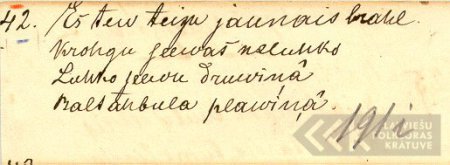 42. Es tew teizu jaunais brahl.
Krohgu seewas neluhko
Luhko seewu druwiņâ
Baltahbula plawiņâ.
1911
LATVIEŠU
FOLKLORAS
KRĀTUVE